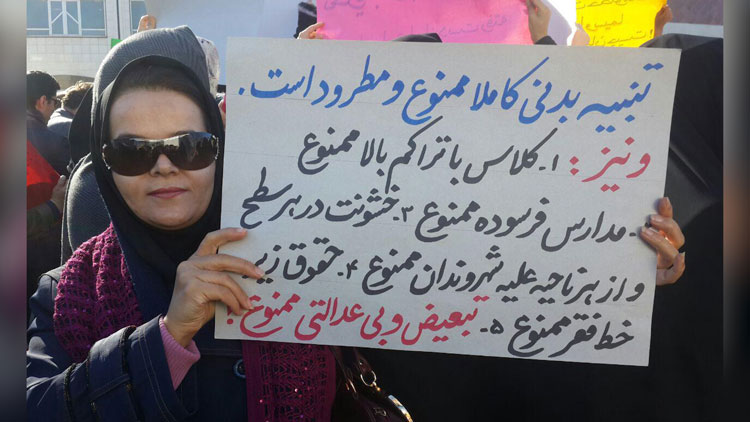 تنبیه بدنی کاملا ممنوع و مطرود است.
و نیز: ۱- کلاس با تراکم بالا ممنوع
- مدارس فرسوده ممنوع ۳- خشونت در هر سطح
و از هر ناحیه علیه شهروندان ممنوع ۴- حقوق زیر
خط فقر ممنوع ۵- تبعیض و بی عدالتی ممنوع!